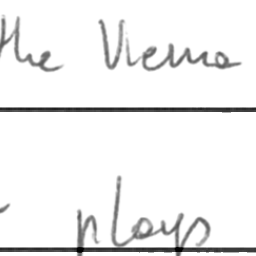 the Vienna
plays